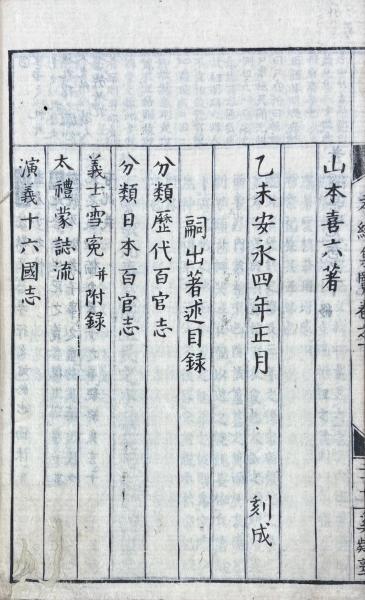 山本喜六著
乙未安永四年正月　刻成
嗣出著述目録
分類歷代百官志
分類日本百官志
義士雪冤 并附録
太禮蒙誌流
演義十六國志